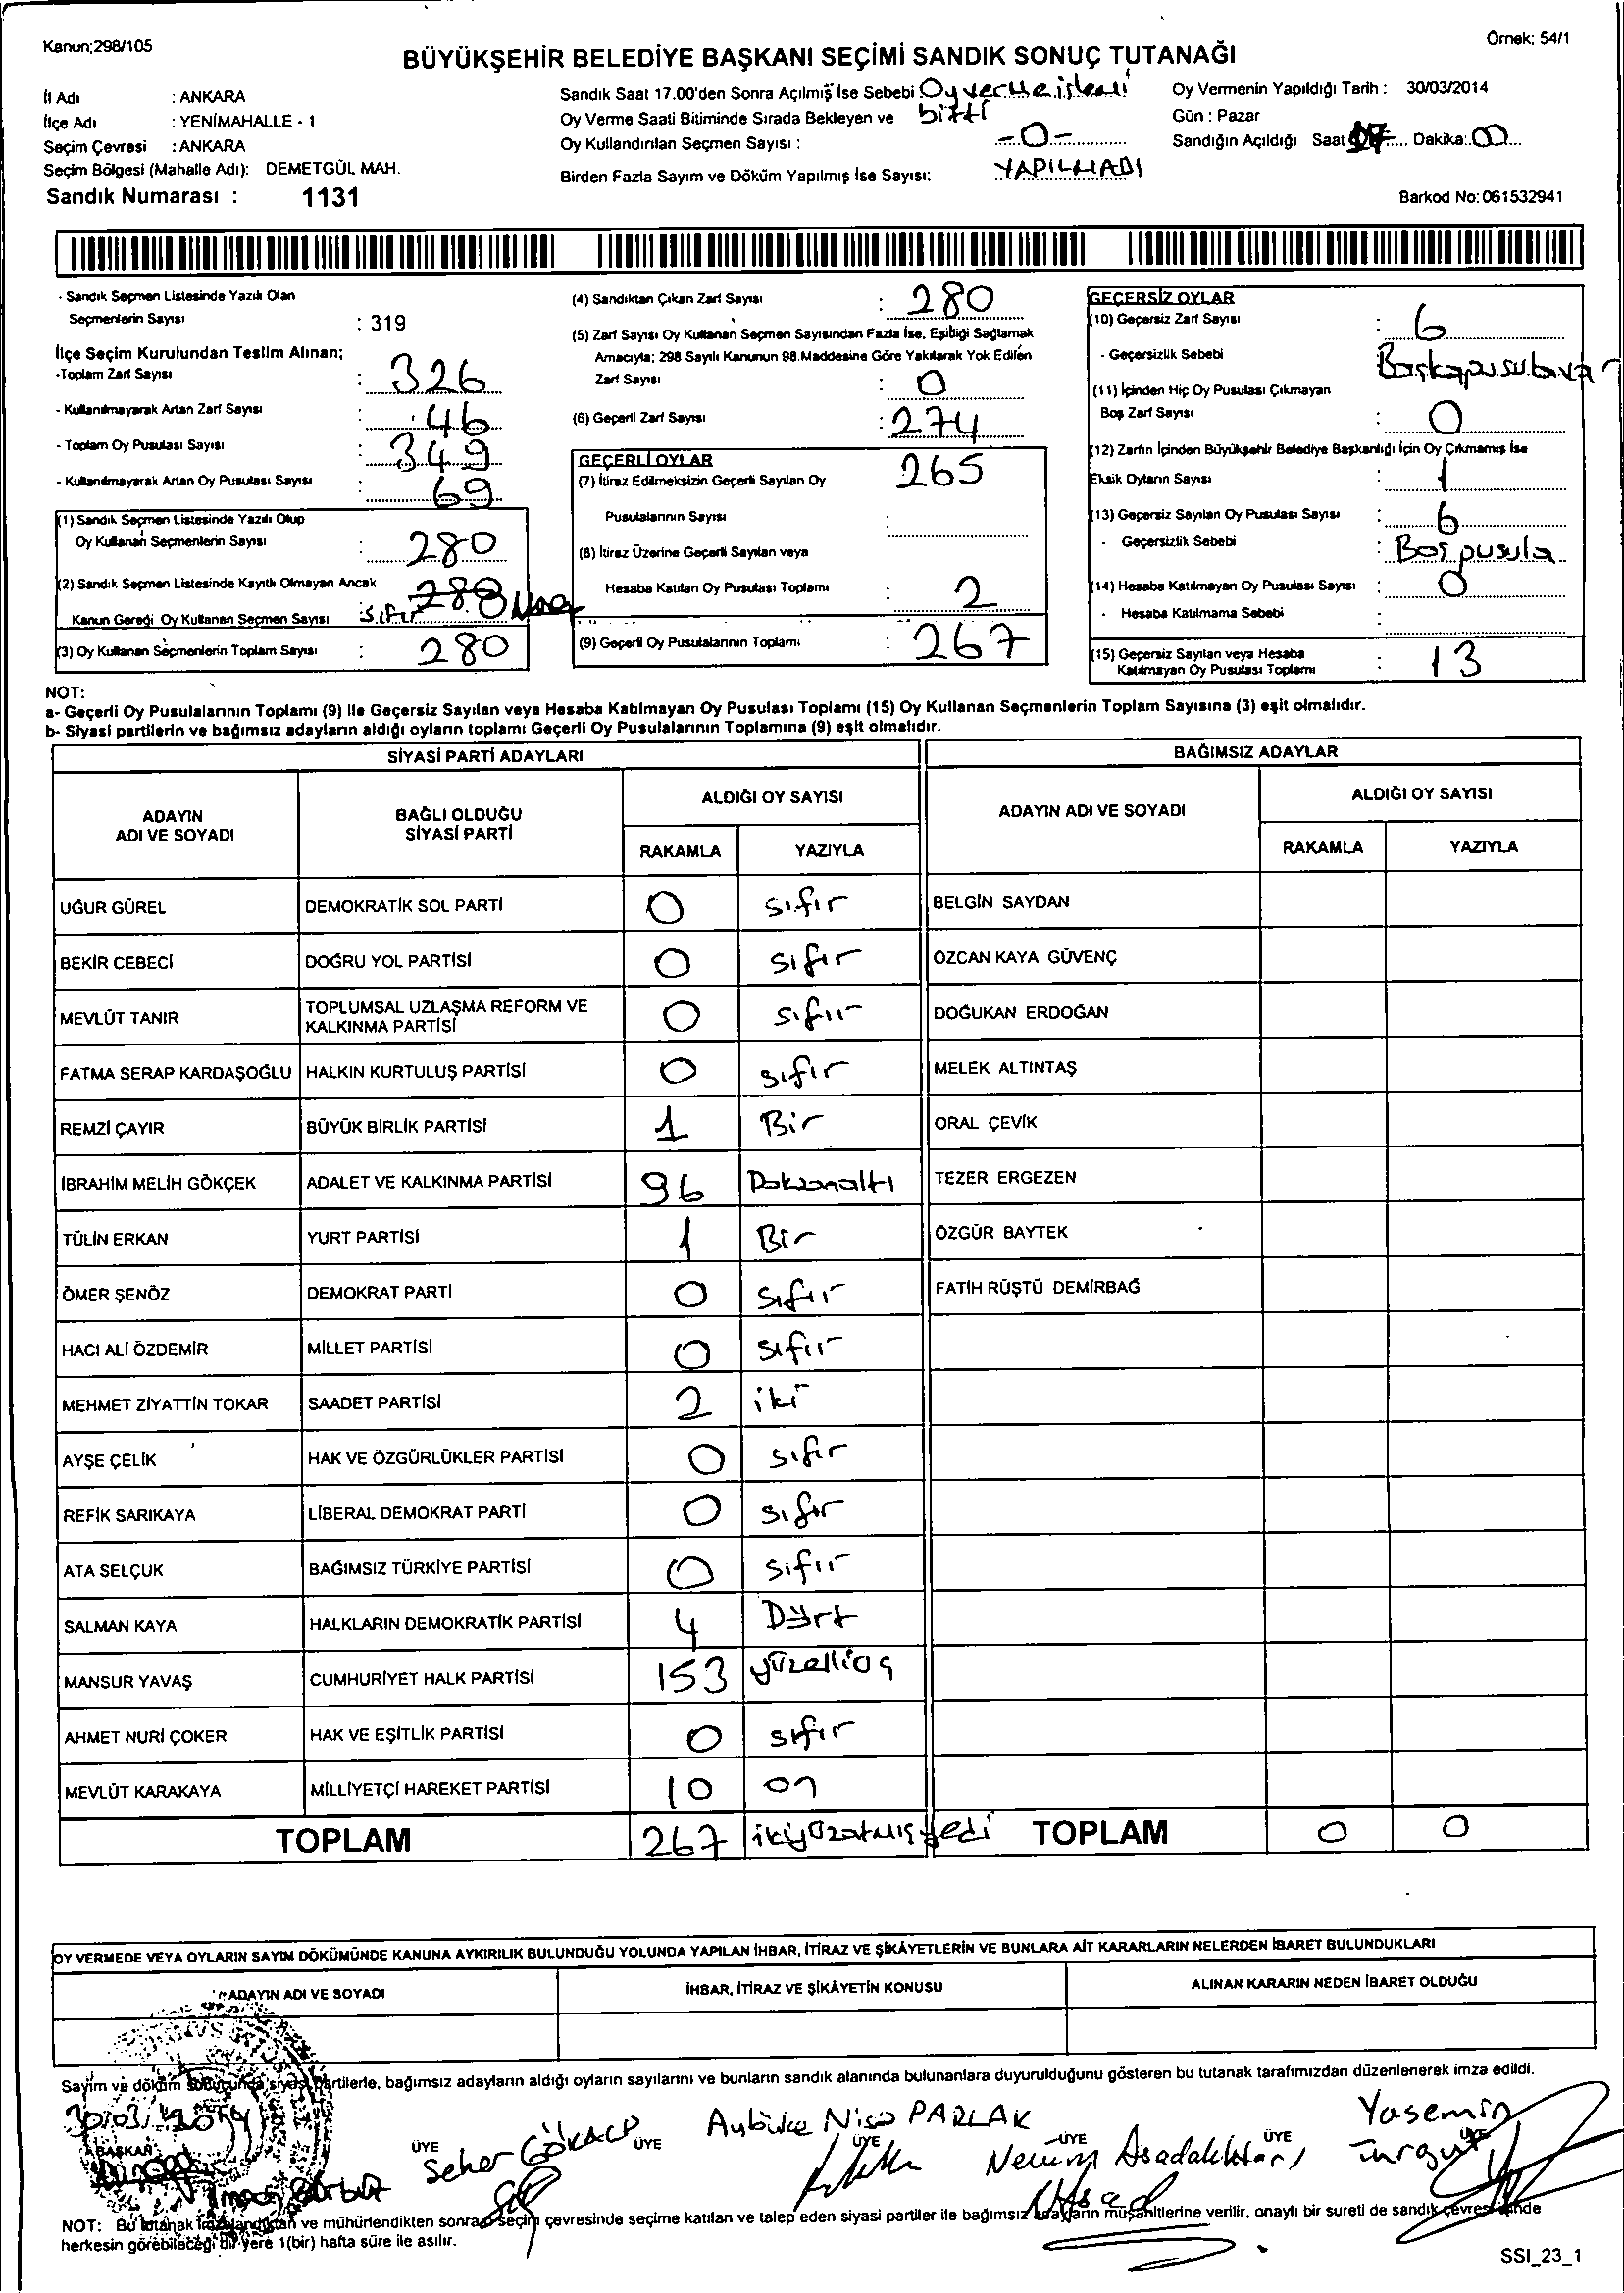 Kanun;298/105
Örnek: 54/1
BÜYÜKŞEHİR BELEDİYE BAŞKANI SEÇİMİ SANDIK SONUÇ TUTANAĞI
İl Adı : ANKARA
İlçe Adı : YENİMAHALLE - 1
Seçim Çevresi : ANKARA
Seçim Bölgesi (Mahalle Adı): DEMETGÜL MAH.
Sandık Numarası : 1131
Sandık Saat 17.00'den Sonra Açılmış İse Sebebi Oy verme işlemi
Oy Verme Saati Bitiminde Sırada Bekleyen ve bitti
Oy Kullandırılan Seçmen Sayısı : -0-
Birden Fazla Sayım ve Döküm Yapılmış İse Sayısı: YAPILMADI
Oy Vermenin Yapıldığı Tarih : 30/03/2014
Gün : Pazar
Sandığın Açıldığı Saat 17 Dakika: 00
Barkod No: 061532941
- Sandık Seçmen Listesinde Yazılı Olan
Seçmenlerin Sayısı : 319
İlçe Seçim Kurulundan Teslim Alınan;
-Toplam Zarf Sayısı : 326
- Kullanılmayarak Artan Zarf Sayısı : 46
- Toplam Oy Pusulası Sayısı : 349
- Kullanılmayarak Artan Oy Pusulası Sayısı : 69
(1) Sandık Seçmen Listesinde Yazılı Olup
Oy Kullanan Seçmenlerin Sayısı : 280
(2) Sandık Seçmen Listesinde Kayıtlı Olmayan Ancak 280
Kanun Gereği Oy Kullanan Seçmen Sayısı : sıfır
(3) Oy Kullanan Seçmenlerin Toplam Sayısı : 280
(4) Sandıktan Çıkan Zarf Sayısı : 280
(5) Zarf Sayısı Oy Kullanan Seçmen Sayısından Fazla İse, Eşitliği Sağlamak
Amacıyla; 298 Sayılı Kanunun 98.Maddesine Göre Yakılarak Yok Edilen
Zarf Sayısı : 0
(6) Geçerli Zarf Sayısı : 274
GEÇERLİ OYLAR
(7) İtiraz Edilmeksizin Geçerli Sayılan Oy 265
Pusulalarının Sayısı :
(8) İtiraz Üzerine Geçerli Sayılan veya
Hesaba Katılan Oy Pusulası Toplamı : 2
(9) Geçerli Oy Pusulalarının Toplamı : 267
GEÇERSİZ OYLAR
(10) Geçersiz Zarf Sayısı : 6
- Geçersizlik Sebebi : Başka pusula var
(11) İçinden Hiç Oy Pusulası Çıkmayan
Boş Zarf Sayısı : 0
(12) Zarfın İçinden Büyükşehir Belediye Başkanlığı İçin Oy Çıkmamış İse
Eksik Oyların Sayısı : 1
(13) Geçersiz Sayılan Oy Pusulası Sayısı : 6
- Geçersizlik Sebebi : Boş pusula
(14) Hesaba Katılmayan Oy Pusulası Sayısı : 0
- Hesaba Katılmama Sebebi :
(15) Geçersiz Sayılan veya Hesaba
Katılmayan Oy Pusulası Toplamı : 13
NOT:
a- Geçerli Oy Pusulalarının Toplamı (9) İle Geçersiz Sayılan veya Hesaba Katılmayan Oy Pusulası Toplamı (15) Oy Kullanan Seçmenlerin Toplam Sayısına (3) eşit olmalıdır.
b- Siyasi partilerin ve bağımsız adayların aldığı oyların toplamı Geçerli Oy Pusulalarının Toplamına (9) eşit olmalıdır.
SİYASİ PARTİ ADAYLARI BAĞIMSIZ ADAYLAR
ADAYIN ADI VE SOYADI BAĞLI OLDUĞU SİYASİ PARTİ ALDIĞI OY SAYISI ADAYIN ADI VE SOYADI ALDIĞI OY SAYISI
RAKAMLA YAZIYLA RAKAMLA YAZIYLA
UĞUR GÜREL DEMOKRATİK SOL PARTİ 0 sıfır BELGİN SAYDAN
BEKİR CEBECİ DOĞRU YOL PARTİSİ 0 sıfır ÖZCAN KAYA GÜVENÇ
MEVLÜT TANIR TOPLUMSAL UZLAŞMA REFORM VE KALKINMA PARTİSİ 0 sıfır DOĞUKAN ERDOĞAN
FATMA SERAP KARDAŞOĞLU HALKIN KURTULUŞ PARTİSİ 0 sıfır MELEK ALTINTAŞ
REMZİ ÇAYIR BÜYÜK BİRLİK PARTİSİ 1 Bir ORAL ÇEVİK
İBRAHİM MELİH GÖKÇEK ADALET VE KALKINMA PARTİSİ 96 Doksanaltı TEZER ERGEZEN
TÜLİN ERKAN YURT PARTİSİ 1 Bir ÖZGÜR BAYTEK
ÖMER ŞENÖZ DEMOKRAT PARTİ 0 sıfır FATİH RÜŞTÜ DEMİRBAĞ
HACI ALİ ÖZDEMİR MİLLET PARTİSİ 0 sıfır
MEHMET ZİYATTİN TOKAR SAADET PARTİSİ 2 iki
AYŞE ÇELİK HAK VE ÖZGÜRLÜKLER PARTİSİ 0 sıfır
REFİK SARIKAYA LİBERAL DEMOKRAT PARTİ 0 sıfır
ATA SELÇUK BAĞIMSIZ TÜRKİYE PARTİSİ 0 sıfır
SALMAN KAYA HALKLARIN DEMOKRATİK PARTİSİ 4 Dört
MANSUR YAVAŞ CUMHURİYET HALK PARTİSİ 153 yüzelliüç
AHMET NURİ ÇOKER HAK VE EŞİTLİK PARTİSİ 0 sıfır
MEVLÜT KARAKAYA MİLLİYETÇİ HAREKET PARTİSİ 10 on
TOPLAM 267 ikiyüzatmışyedi TOPLAM 0 0
OY VERMEDE VEYA OYLARIN SAYIM DÖKÜMÜNDE KANUNA AYKIRILIK BULUNDUĞU YOLUNDA YAPILAN İHBAR, İTİRAZ VE ŞİKÂYETLERİN VE BUNLARA AİT KARARLARIN NELERDEN İBARET BULUNDUKLARI
ADAYIN ADI VE SOYADI İHBAR, İTİRAZ VE ŞİKÂYETİN KONUSU ALINAN KARARIN NEDEN İBARET OLDUĞU
Sayım ve döküm sonucunda siyasi partilerle, bağımsız adayların aldığı oyların sayılarını ve bunların sandık alanında bulunanlara duyurulduğunu gösteren bu tutanak tarafımızdan düzenlenerek imza edildi.
30/03/2014
BAŞKAN ÜYE ÜYE ÜYE ÜYE ÜYE ÜYE
Seher GÖKALP
Aybüke Nisa PARLAK
Yasemin Turgut
NOT: Bu tutanak imzalandıktan ve mühürlendikten sonra seçim çevresinde seçime katılan ve talep eden siyasi partiler ile bağımsız adayların müşahitlerine verilir, onaylı bir sureti de sandık çevresinde
herkesin görebileceği bir yere 1(bir) hafta süre ile asılır.
SSI_23_1